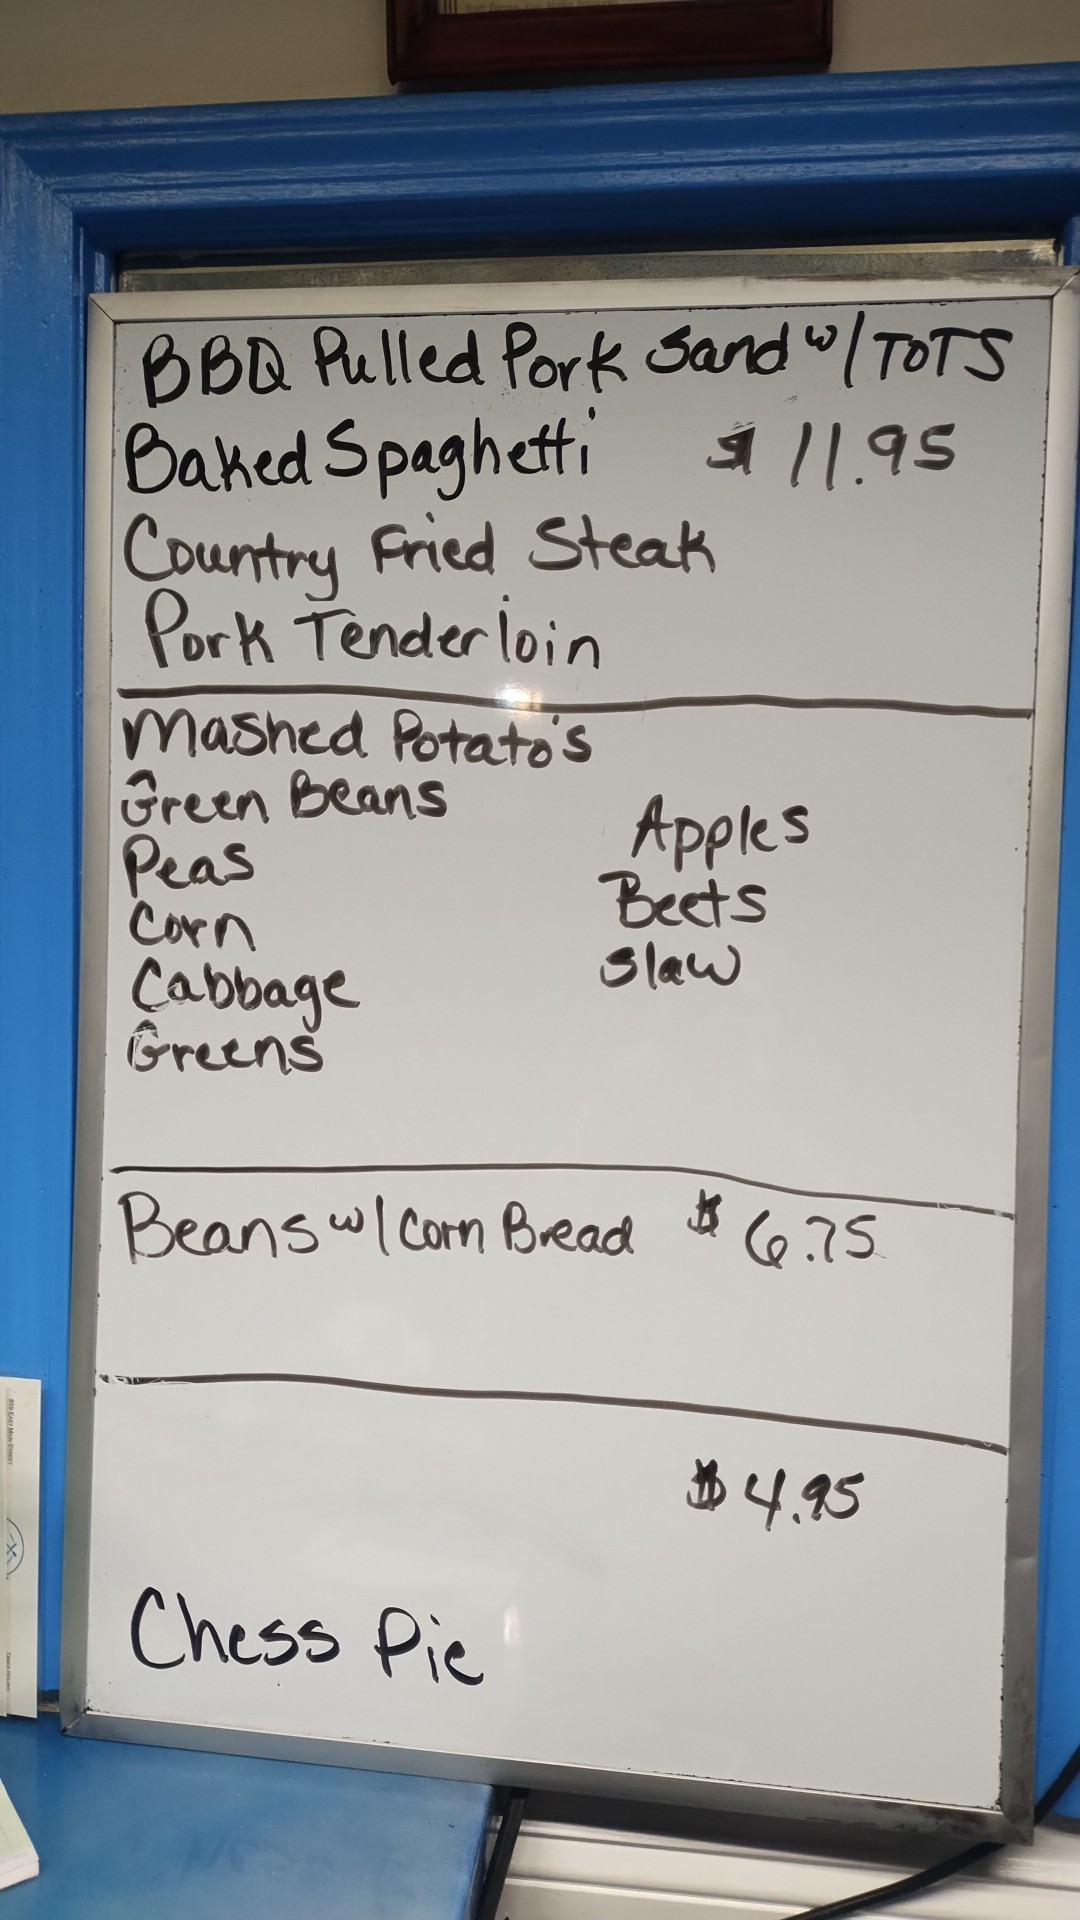 BBQ Pulled Pork Sand w/ TOTS
Baked Spaghetti $11.95
Country Fried Steak
Pork Tenderloin
Mashed Potato's
Green Beans
Peas
Corn
Cabbage
Greens
Apples
Beets
Slaw
Beans w/ Corn Bread $6.75
$4.95
Chess Pie
859 EAST MAIN STREET